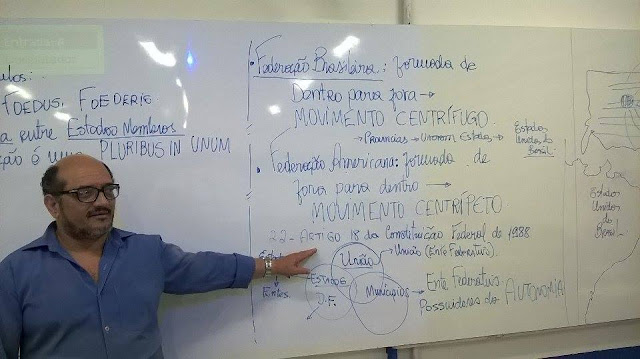 FOEDUS, FOEDERIS
a entre Estados Membros
ção é uma PLURIBUS IN UNUM
Federação Brasileira: formada de
Dentro para fora →
MOVIMENTO CENTRÍFUGO
→ Províncias → Viraram Estados →
Estados
Unidos do
Brasil.
Federação Americana: formada de
fora para dentro →
MOVIMENTO CENTRÍPETO
22 - ARTIGO 18 da Constituição Federal de 1988
União
→ União (Ente Federativo).
Estados
D.F.
Municípios
→ Ente Federativo
Possuidores de AUTONOMIA
Estados
Unidos
do
Brasil.